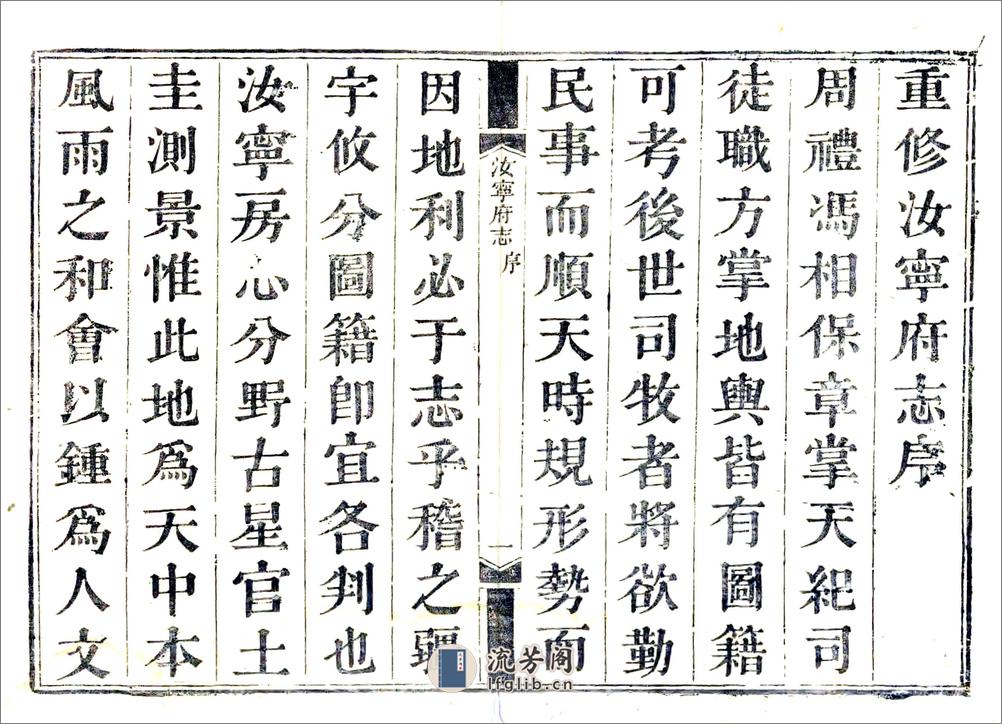 重修汝寧府志序
周禮馮相保章掌天紀司
徒職方掌地輿皆有圖籍
可考後世司牧者將欲勤
民事而順天時規形勢而
汝寧府志 序
一
因地利必于志乎稽之疆
宇攸分圖籍卽宜各判也
汝寧房心分野古星官土
圭測景惟此地爲天中本
風雨之和會以鍾爲人文
流芳阁
lfglib.cn